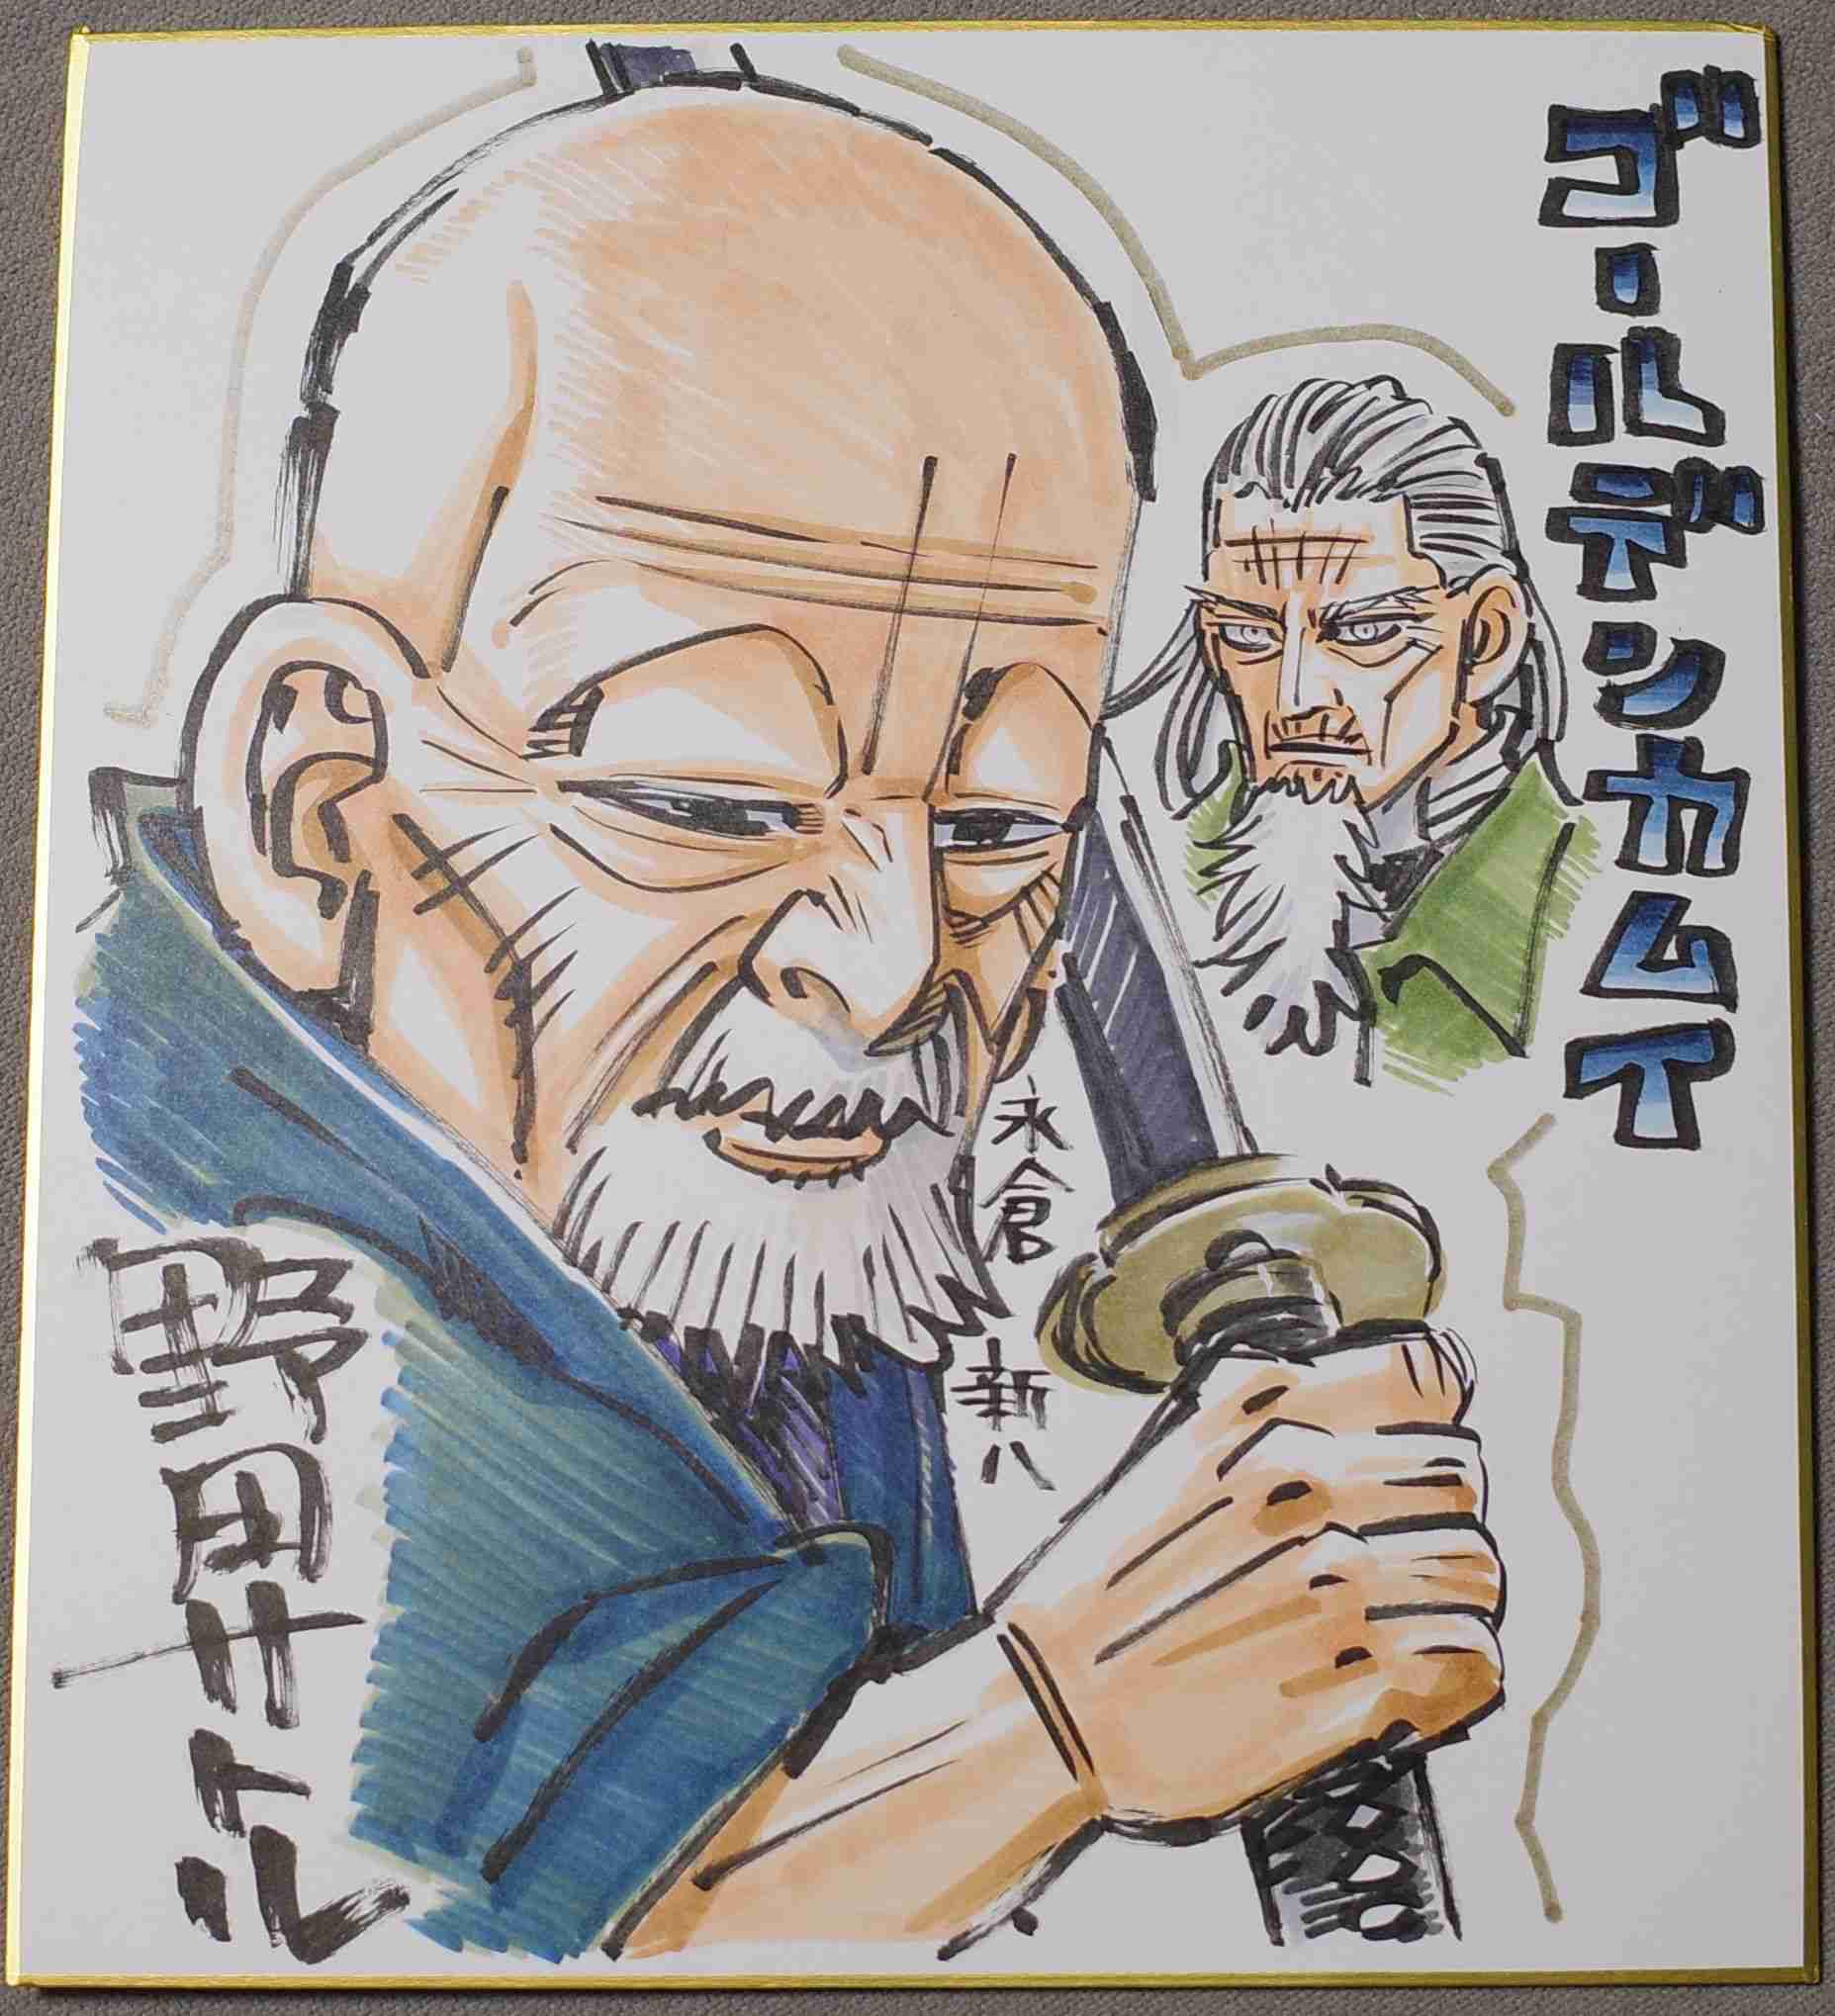 ゴールデンカムイ
永倉
新八
野田サトル